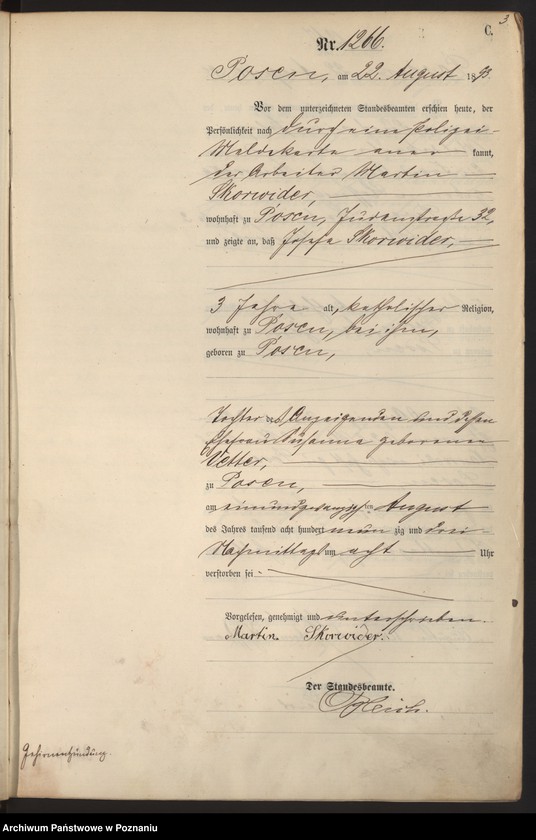 3
C.
Nr. 1266.
Posen, am 22. August 1893.
Vor dem unterzeichneten Standesbeamten erschien heute, der
Persönlichkeit nach durch eine Polizei-
Meldekarte aner kannt,
der Arbeiter Martin
Skorwider,
wohnhaft zu Posen, 32,
und zeigte an, daß Josefa Skorwider,
3 Jahre alt, katholischer Religion,
wohnhaft zu Posen, bei ihm,
geboren zu Posen,
Tochter des Anzeigenden und dessen
Ehefrau Susanna geborenen
Vetter,
zu Posen,
am einundzwanzigsten August
des Jahres tausend acht hundert neun zig und drei
Nachmittags um acht Uhr
verstorben sei
Vorgelesen, genehmigt und unterschrieben.
Martin Skorwider.
Der Standesbeamte.
Gehirnentzündung.
Archiwum Państwowe w Poznaniu